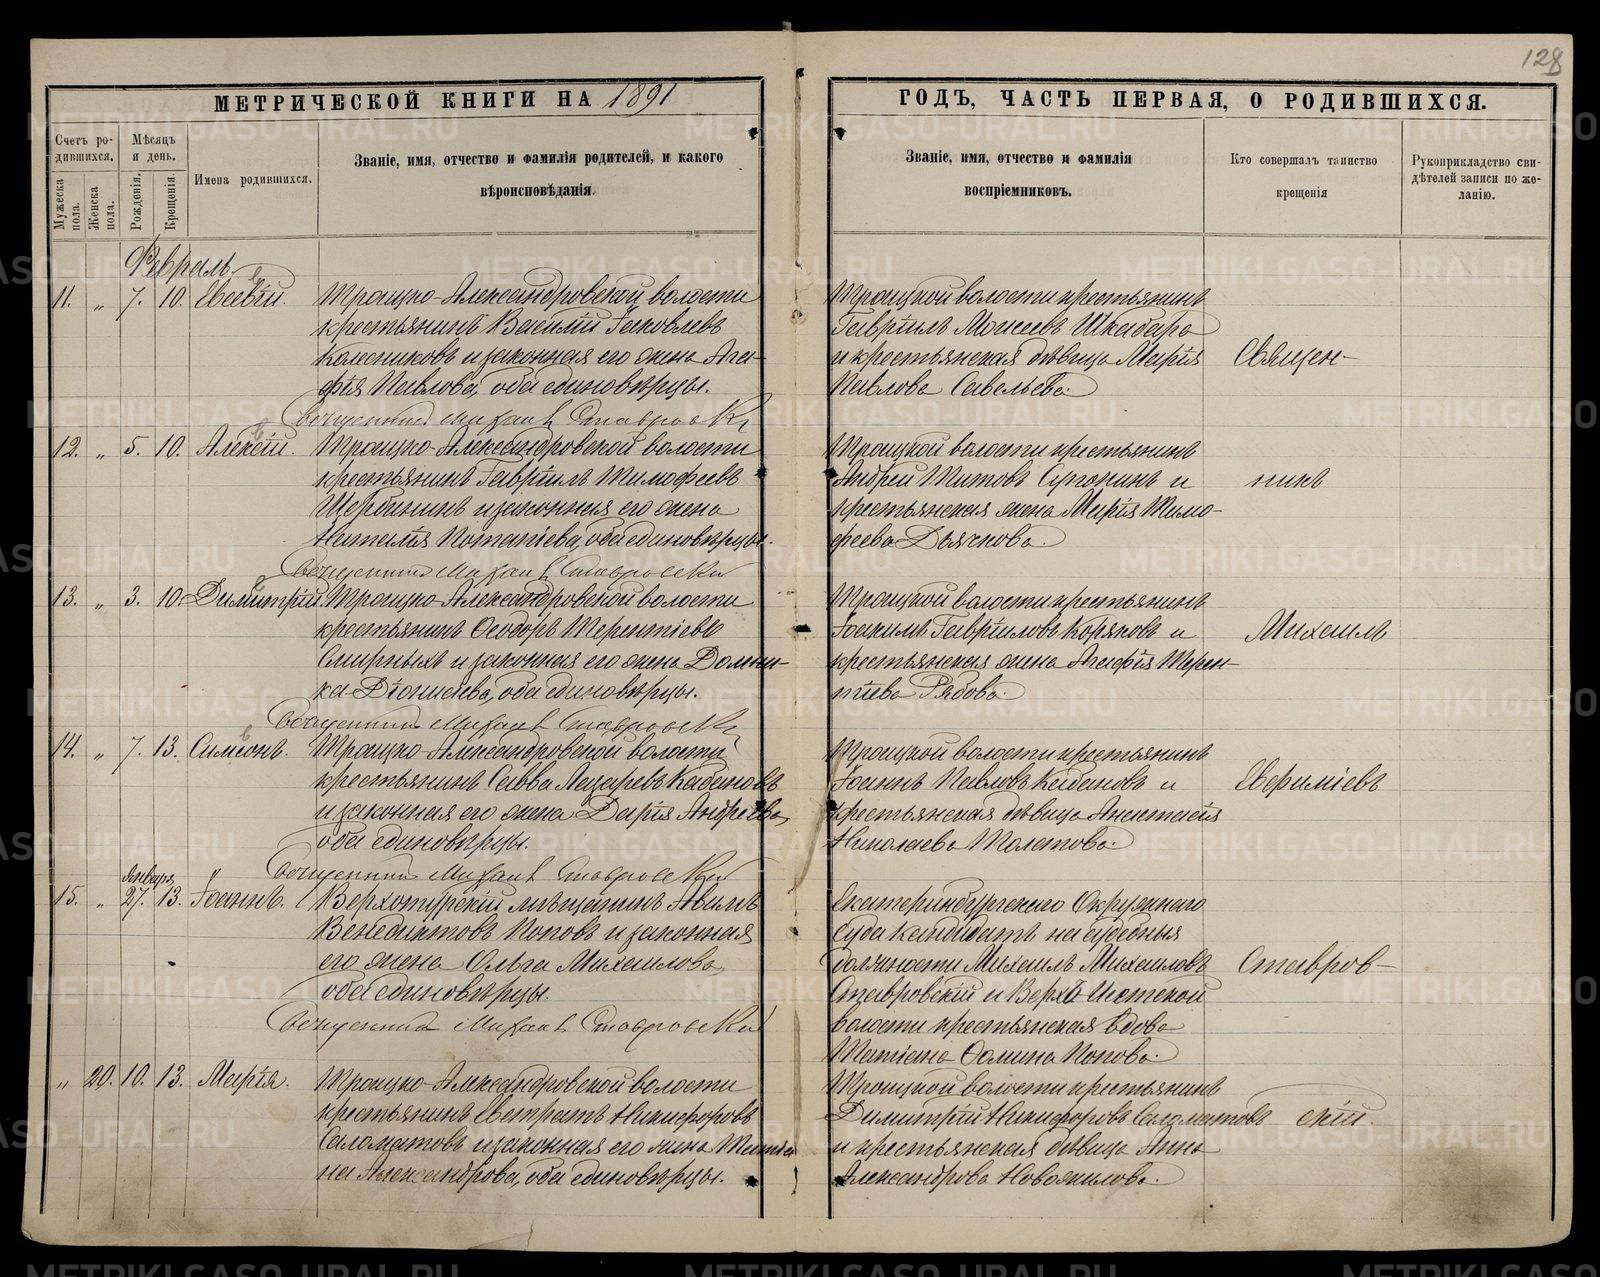 128
МЕТРИЧЕСКОЙ КНИГИ НА 1891
Счетъ ро-
дившихся.
Мужеска пола.
Женска пола.
Мѣсяцъ
и день.
Рожденія.
Крещенія.
Имена родившихся.
Званіе, имя, отчество и фамилія родителей, и какого
вѣроисповѣданія.
Февраль
11. „ 7. 10. Евсевій. Троицко-Александровской волости
крестьянинъ Василій Іаковлевъ
Колесниковъ и законная его жена Ага-
фія Павлова, оба единовѣрцы.
Священникъ Михаилъ Ставровскій
12. „ 5. 10. Алексій. Троицко-Александровской волости
крестьянинъ Гавріилъ Тимофеевъ
Щербининъ и законная его жена
Наталія Потапіева, оба единовѣрцы.
Священникъ Михаилъ Ставровскій
13. „ 3. 10. Димитрій. Троицко-Александровской волости
крестьянинъ Ѳеодоръ Терентіевъ
Смирныхъ и законная его жена Домни-
ка Діонисіева, оба единовѣрцы.
Священникъ Михаилъ Ставровскій
14. „ 7. 13. Симеонъ. Троицко-Александровской волости
крестьянинъ Савва Лазаревъ Кабановъ
и законная его жена Дарія Андреева,
оба единовѣрцы.
Священникъ Михаилъ Ставровскій
Января
15. „ 27. 13. Іоаннъ. Верхотурскій мѣщанинъ Авимъ
Венедиктовъ Поповъ и законная
его жена Ольга Михаилова,
оба единовѣрцы.
Священникъ Михаилъ Ставровскій
„ 20. 10. 13. Марія. Троицко-Александровской волости
крестьянинъ Евстратъ Никифоровъ
Саломатовъ и законная его жена Татіа-
на Александрова, оба единовѣрцы.
ГОДЪ, ЧАСТЬ ПЕРВАЯ, О РОДИВШИХСЯ.
Званіе, имя, отчество и фамилія
воспріемниковъ.
Кто совершалъ таинство
крещенія
Рукоприкладство сви-
дѣтелей записи по же-
ланію.
Троицкой волости крестьянинъ
Гавріилъ Моисеевъ Шкабара
и крестьянская дѣвица Марія
Павлова Савельева.
Троицкой волости крестьянинъ
Андрей Титовъ и
крестьянская жена Марія Тимо-
феева Дьячкова.
Троицкой волости крестьянинъ
Іоакимъ Гавріиловъ Коряковъ и
крестьянская жена Агафія Терен-
тіева Рябова.
Троицкой волости крестьянинъ
Іоаннъ Павловъ Кабановъ и
крестьянская дѣвица Анастасія
Николаева Толстова.
Екатеринбургскаго Окружнаго
Суда кандидатъ на судебныя
должности Михаилъ Михаиловъ
Ставровскій и Верхъ-Исетской
волости крестьянская вдова
Татіана Ѳомина Попова.
Троицкой волости крестьянинъ
Димитрій Никифоровъ Саломатовъ
и крестьянская дѣвица Анна
Александрова Новожилова.
Священ-
никъ
Михаилъ
Евфиміевъ
Ставров-
скій.
METRIKI.GASO-URAL.RU